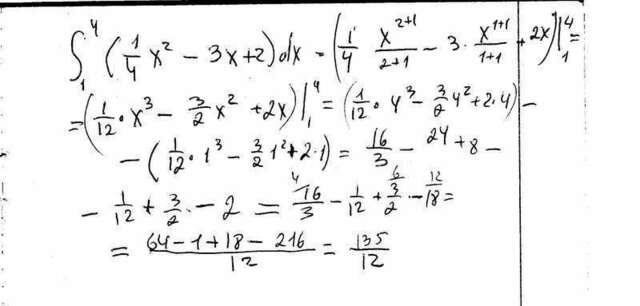 ∫₁⁴ (1/4 x² − 3x+2)dx = (1/4 x²⁺¹/2+1 − 3 · x¹⁺¹/1+1 + 2x)|₁⁴ =
= (1/12 · x³ − 3/2 x² + 2x)|₁⁴ = (1/12 · 4³ − 3/2 4² + 2·4) −
− (1/12 · 1³ − 3/2 1² + 2·1) = 16/3 − 24 + 8 −
− 1/12 + 3/2 − 2 = ⁴⁄16/3 − 1/12 + ⁶⁄3/2 − ¹²⁄18 =
= 64−1+18−216/12 = 135/12